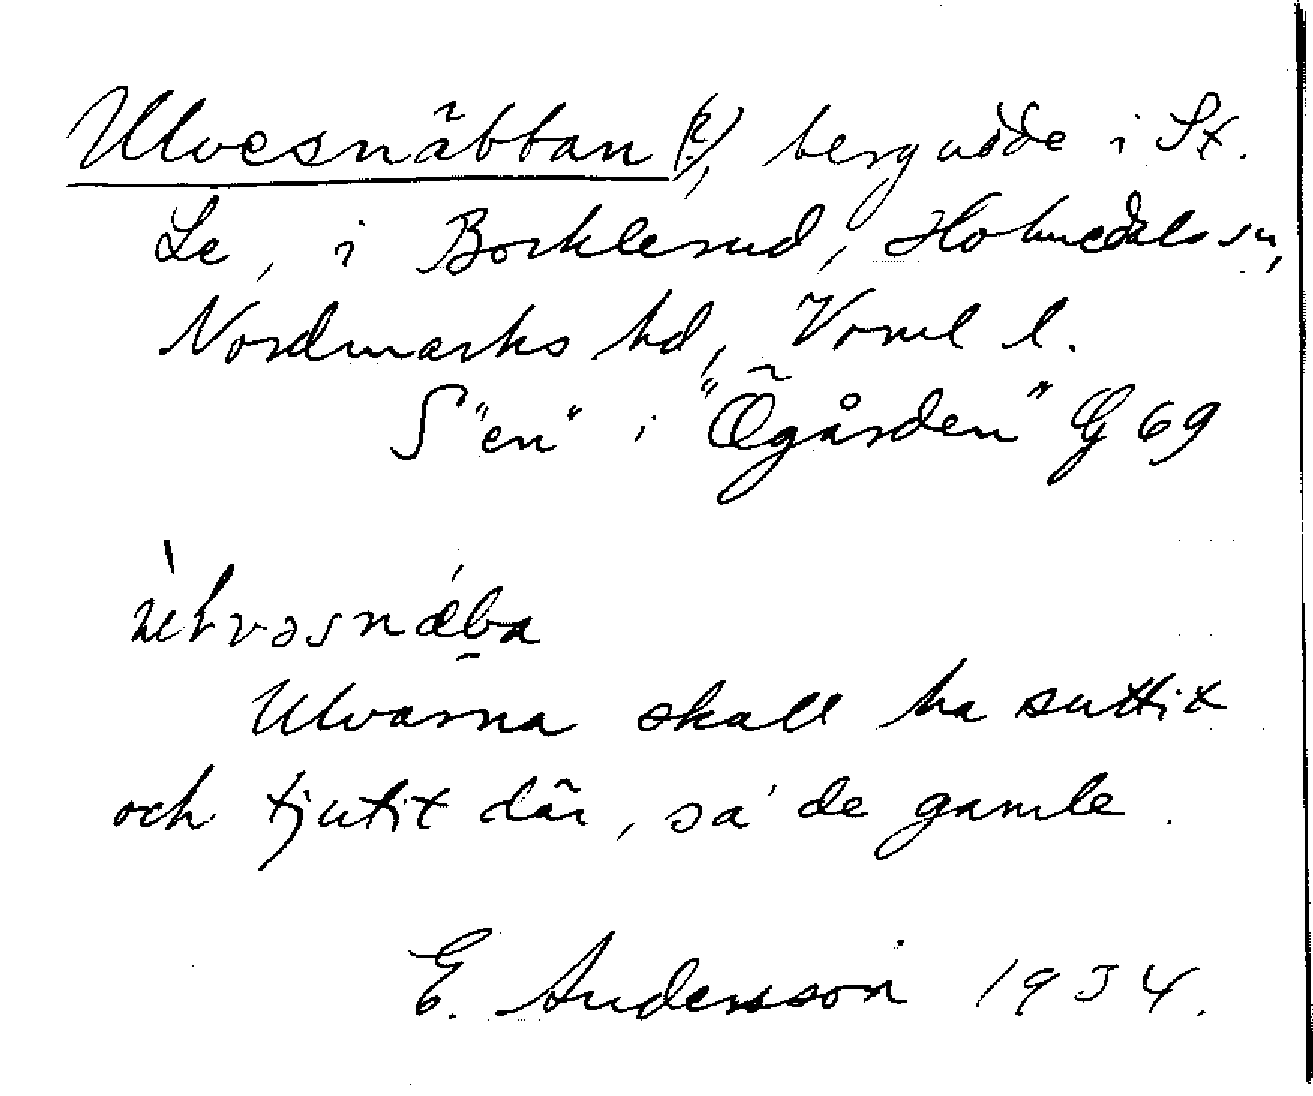 Ulvesnäbban (?), bergudde i St.
Le, i Bocklerud, Holmedals sn,
Nordmarks hd, Vorml l.
S "en" i "Ögården" G 69
ùłvəsnǽba
Ulvarna skall ha suttit
och tjutit där, sa' de gamle.
E. Andersson 1934.